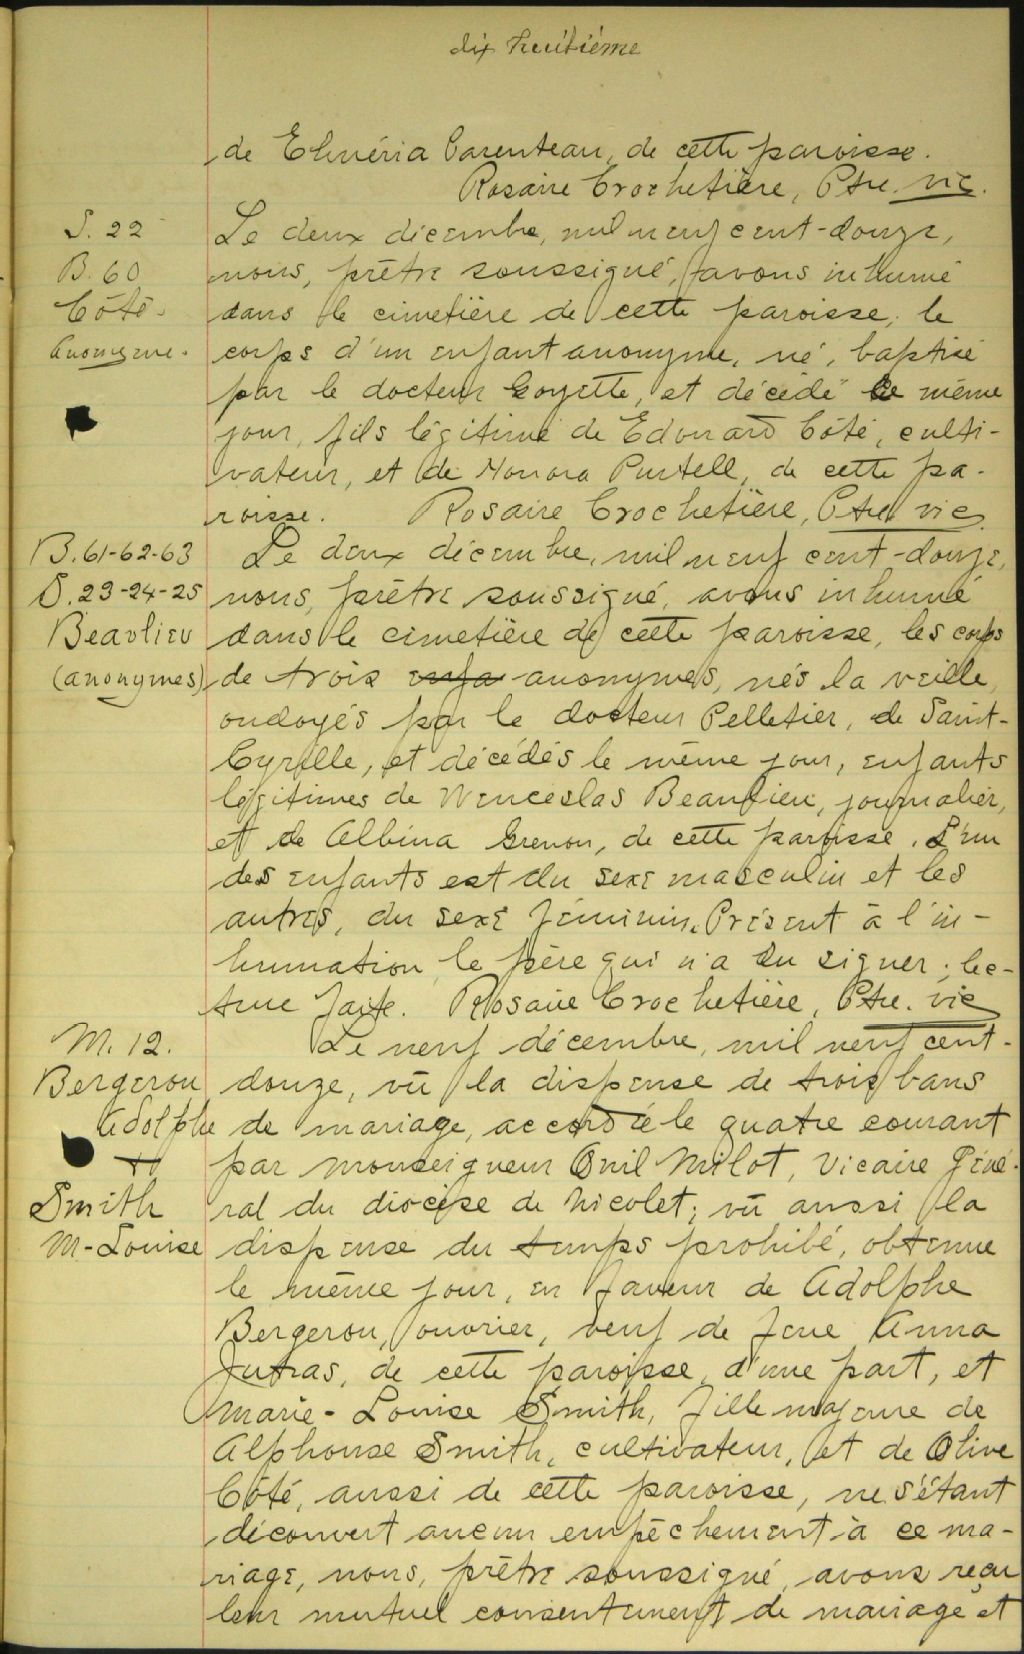 dix huitième
de Elméria Parenteau, de cette paroisse.
Rosaire Crochetière, Ptre. vic.
S. 22
B. 60
Côté
anonyme.
Le deux décembre, mil neuf cent-douze,
nous, prêtre soussigné, avons inhumé
dans le cimetière de cette paroisse, le
corps d'un enfant anonyme, né, baptisé
par le docteur Goyette, et décédé le même
jour, fils légitime de Edouard Côté, culti-
vateur, et de Honora Purtell, de cette pa-
roisse. Rosaire Crochetière, Ptre. vic.
B. 61-62-63
S. 23-24-25
Beaulieu
(anonymes)
Le deux décembre, mil neuf cent-douze,
nous, prêtre soussigné, avons inhumé
dans le cimetière de cette paroisse, les corps
de trois enfa anonymes, nés la veille,
ondoyés par le docteur Pelletier, de Saint-
Cyrille, et décédés le même jour, enfants
légitimes de Wenceslas Beaulieu, journalier,
et de Albina Grenon, de cette paroisse. L'un
des enfants est du sexe masculin et les
autres, du sexe féminin. Présent à l'in-
humation le père qui n'a su signer; lec-
ture faite. Rosaire Crochetière, Ptre. vic
M. 12.
Bergeron
Adolphe
+
Smith
M-Louise
Le neuf décembre, mil neuf cent-
douze, vû la dispense de trois bans
de mariage, accordée le quatre courant
par monseigneur Onil Milot, Vicaire Géné-
ral du diocèse de Nicolet; vû aussi la
dispense du temps prohibé, obtenue
le même jour, en faveur de Adolphe
Bergeron, ouvrier, veuf de feue Anna
Jutras, de cette paroisse, d'une part, et
Marie-Louise Smith, fille majeure de
Alphonse Smith, cultivateur, et de Olive
Côté, aussi de cette paroisse, ne s'étant
découvert aucun empêchement à ce ma-
riage, nous, prêtre soussigné, avons reçu
leur mutuel consentement de mariage et